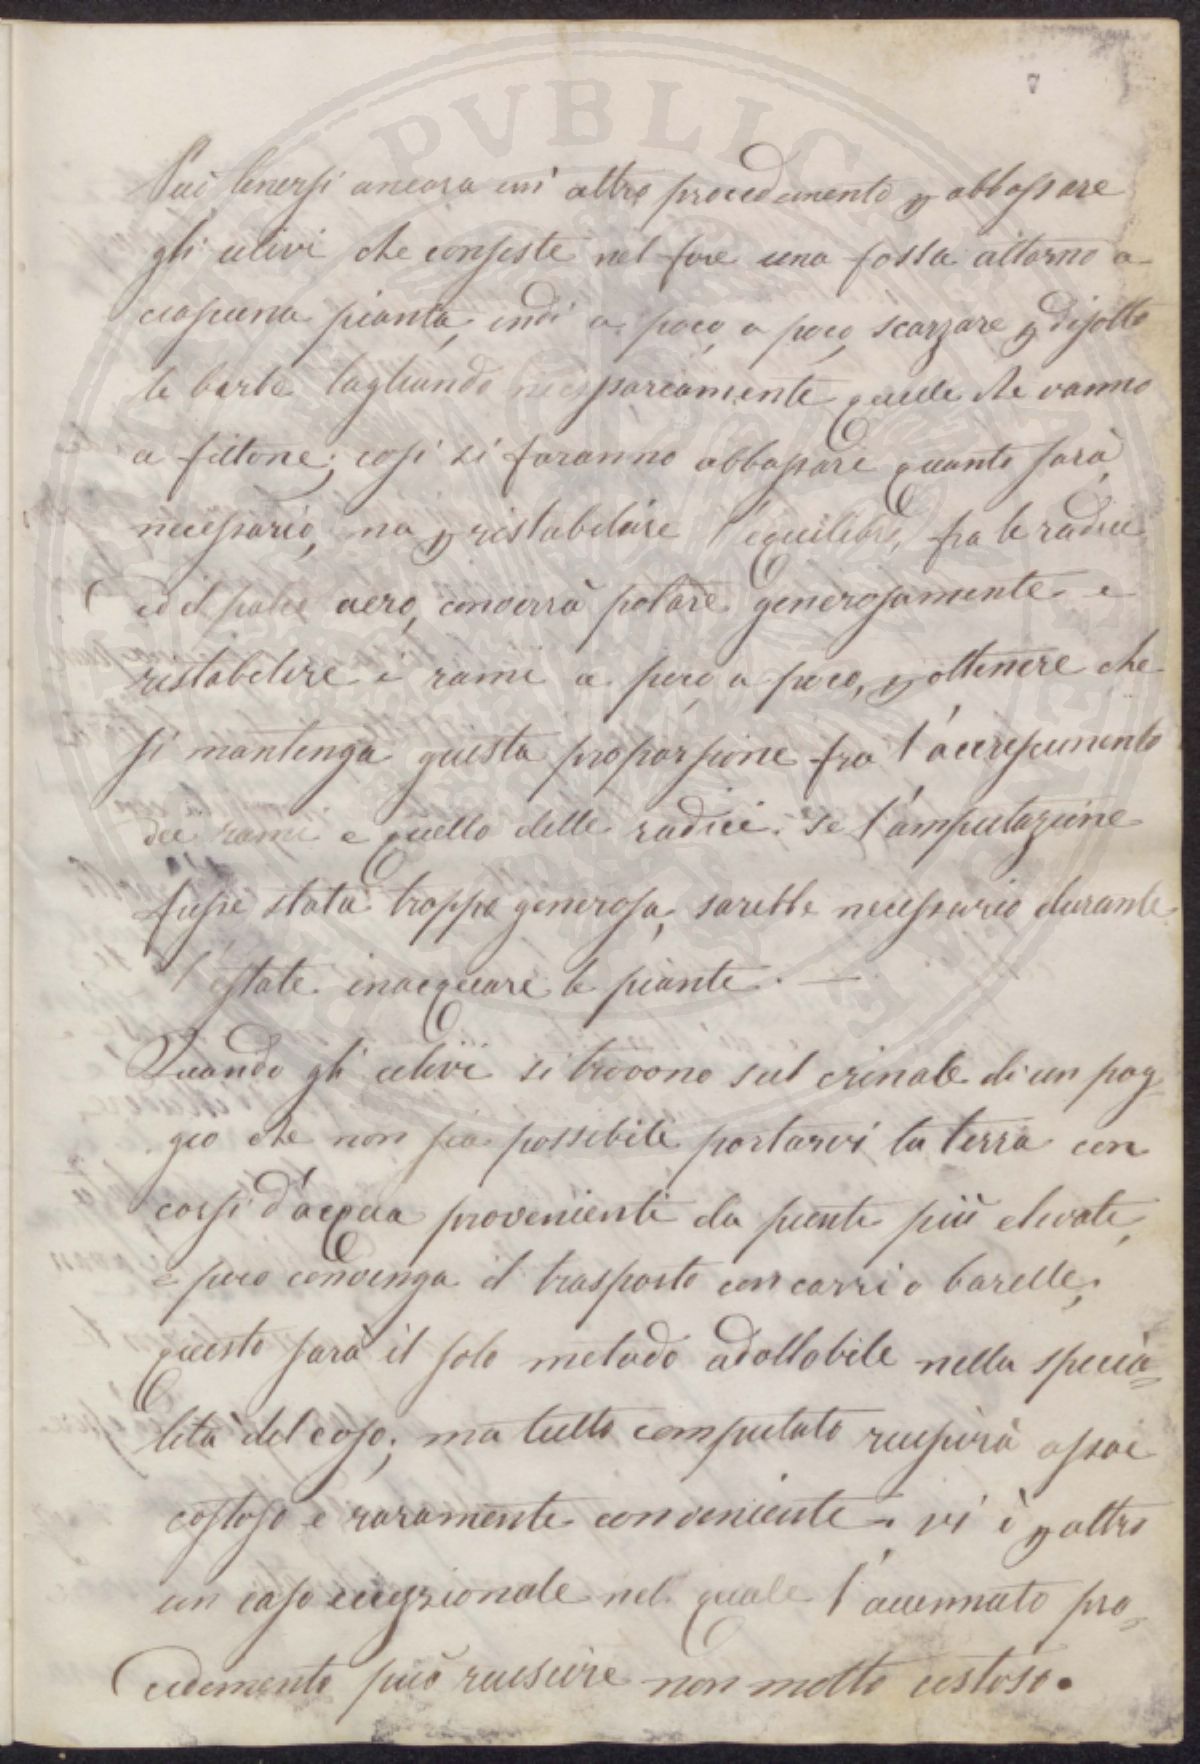 7
Può tenersi ancora un' altro procedimento p abbassare
gli ulivi che consiste nel fare una fossa attorno a
ciascuna pianta, indi a poco, a poco, scarzare p disotto
le barbe tagliando parcamente quelle che vanno
a fittone; così si faranno abbassare quanto sarà
necessario, ma p ristabilire l'equilibrio, fra le radici
ed il palco aereo, converrà potare generosamente e
ristabilire i rami a poco a poco, p ottenere che
si mantenga giusta proporsione fra l'accrescimento
dei rami e quello delle radici. Se l'amputazione
fusse stata troppo generosa, sarebbe necessario durante
l'estate inacquare le piante. —
Quando gli ulivi si trovono sul crinale di un pog-
gio che non sia possibile portarvi la terra con
corsi d'acqua proveniente da punti più elevati,
e però convenga il trasporto con carri o barelle,
questo sarà il solo metodo adottabile nella specia-
lità del caso; ma tutto computato riuscirà assai
costoso e raramente conveniente. vi è p altro
un caso eccezionale nel quale l'accennato pro-
cedimento può riuscire non molto costoso.
PVBLIC